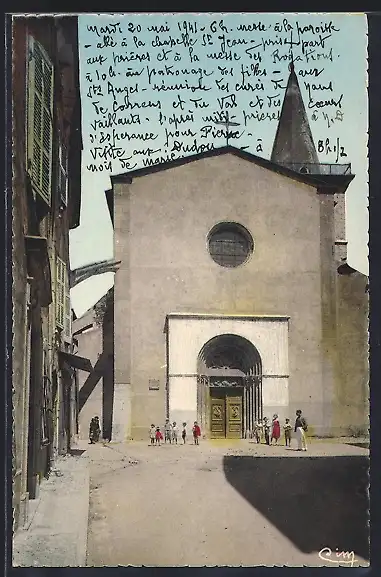 mardi 20 mai 1941 - 6h. messe à la paroisse
- allé à la chapelle St Jean - pris part
aux prières et à la messe des Rogations.
à 10h. au patronage des filles - aux
Sts Anges - réunion des curés de
de Couvens et du Var et des Coeurs
vaillants. L'après midi - prières à N.D
d'Espérance pour Pierre -
Visite aux Dudou - à 8h 1/2
mois de marie.
Cim